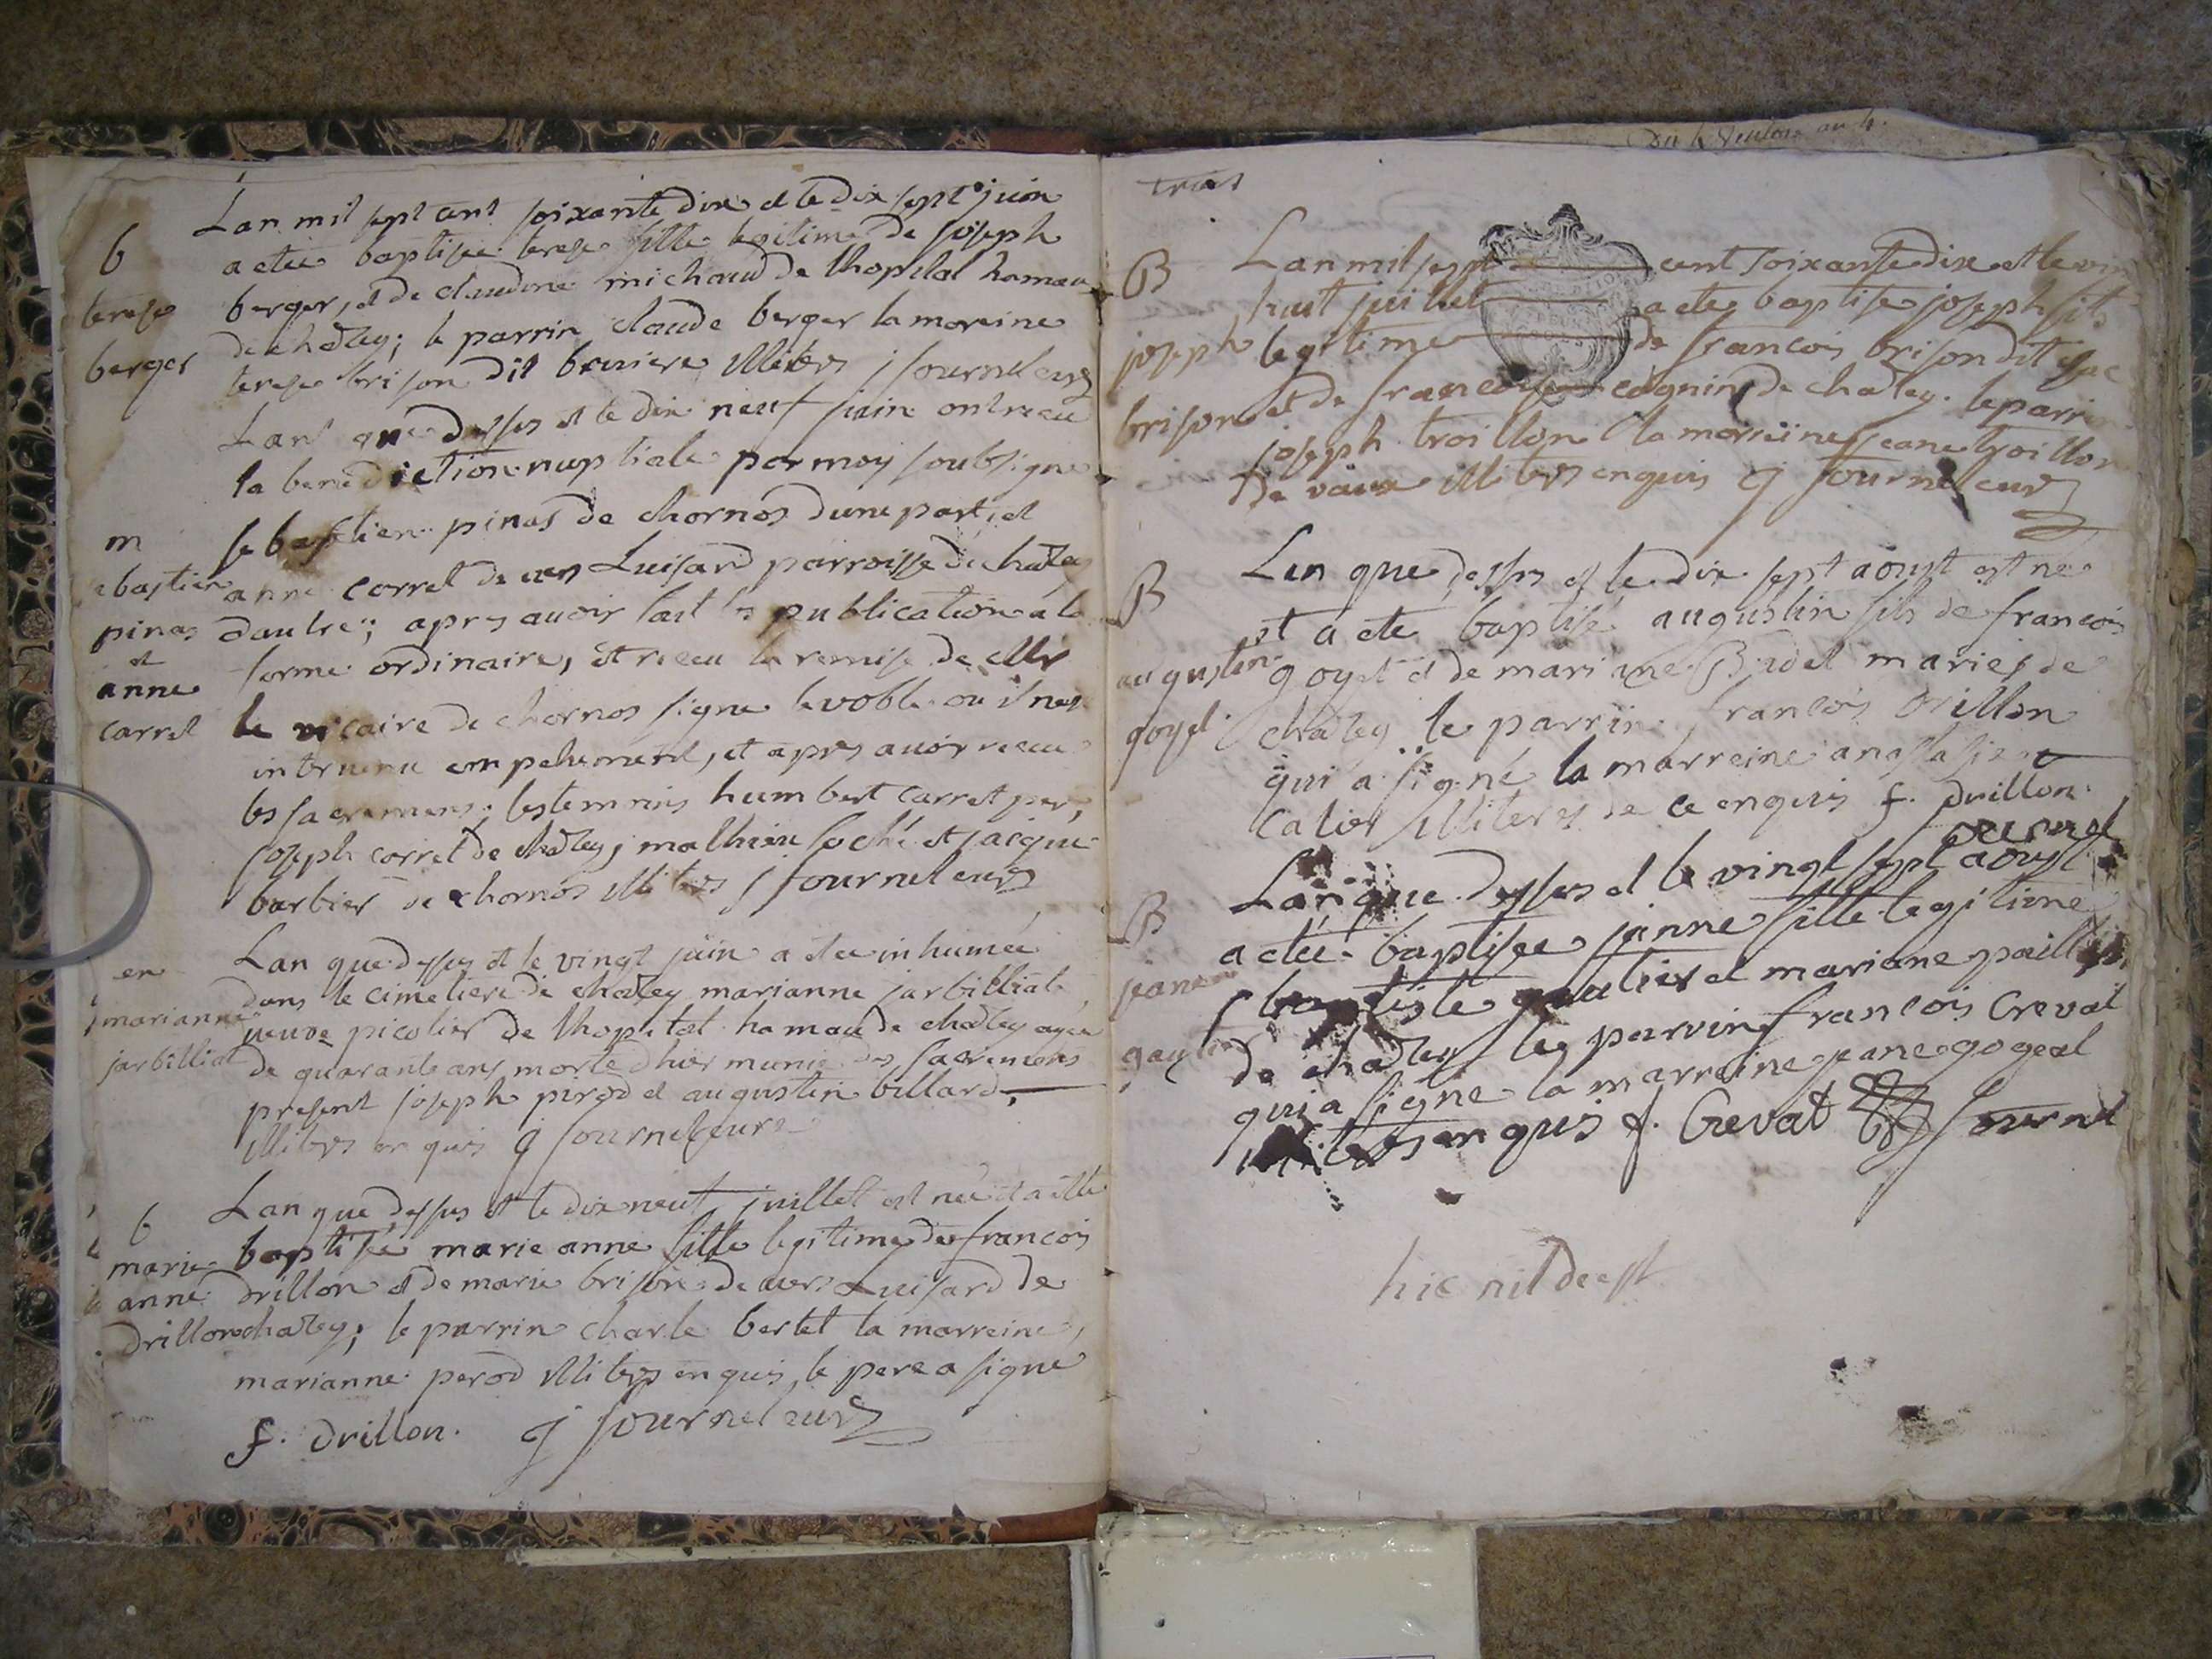 Lan mil sept cent soixante dix et le dix sept juin
b
a etee baptisee terese fille legitime de joseph
terese
berger, et de claudine michaud de lhopital hameau
berger
de chazey; le parrin claude berger la marreine
terese brison dit bruiere illitérés j fourneleurs
Lans que dessus et le dix neuf juin ont recu
la benediction nuptiale par moy soubsigné
m
sebastien pinas de chornos dune part, et
ebastien
anne carret de vers Luisard parroisse de chazey
pinas
dautre; apres avoir fait les publication a la
et
forme ordinaire, et receu la remise de Mr
anne
carret
le vicaire de chornos signe levoble ou il nest
intervenu empehement, et apres avoir receu
les sacremens; les temoins humbert carret per,
joseph carret de chazey, mathieu loché et jacque
barbier de chornos illiteres j fourneleurs
en
Lan que dessus et le vingt juin a etee inhumée
dans le cimetiere de chazey marianne jarbilliat
marianne
veuve picolier de lhopital hamau de chazey agée
jarbilliat
de quarante ans morte dhier munie des sacremens
present joseph pirod et augustin billard,
illiteres en quis j fourneleurs
b
Lan que dessus et le dix neuf juillet est née et a ette
marie
baptisée marie anne fille legitime de francois
anne
drillon et de marie brison de vers Luisard de
drillon
chazey; le parrin charle bertet la marreine,
marianne perod illiteres enquis, le pere a signé
f. drillon. j fourneleurs
trois
B
Lan mil sept cent soixante dix et le vin
huit juillet a ete baptise joseph fils
joseph
legitime de francois brison dit
brison
et de francoise cognin de chazey. le parrin
joseph troillon la marreine jeane troillon
de vaux illiteres enquis j fourneleurs
B
Lan que dessus et le dix sept aoust est ne
et a ete baptisé augustin fils de francois
augustin
goyet et de mariane Badel mariés de
goyet
chazey le parrin francois drillon
qui a signé la marreine anastasie
catier illiteres de ce enquis f. drillon.
fournel
B
Lan que dessus et le vingt sept aoust
a etée baptisee janne fille legitime
jeane
j baptiste gautier et mariane paillet
gautier
de chazey le parrin francois Crevat
qui a signé la marreine jeane goget
illiteres enquis f. Crevat fournel
hic nil deest